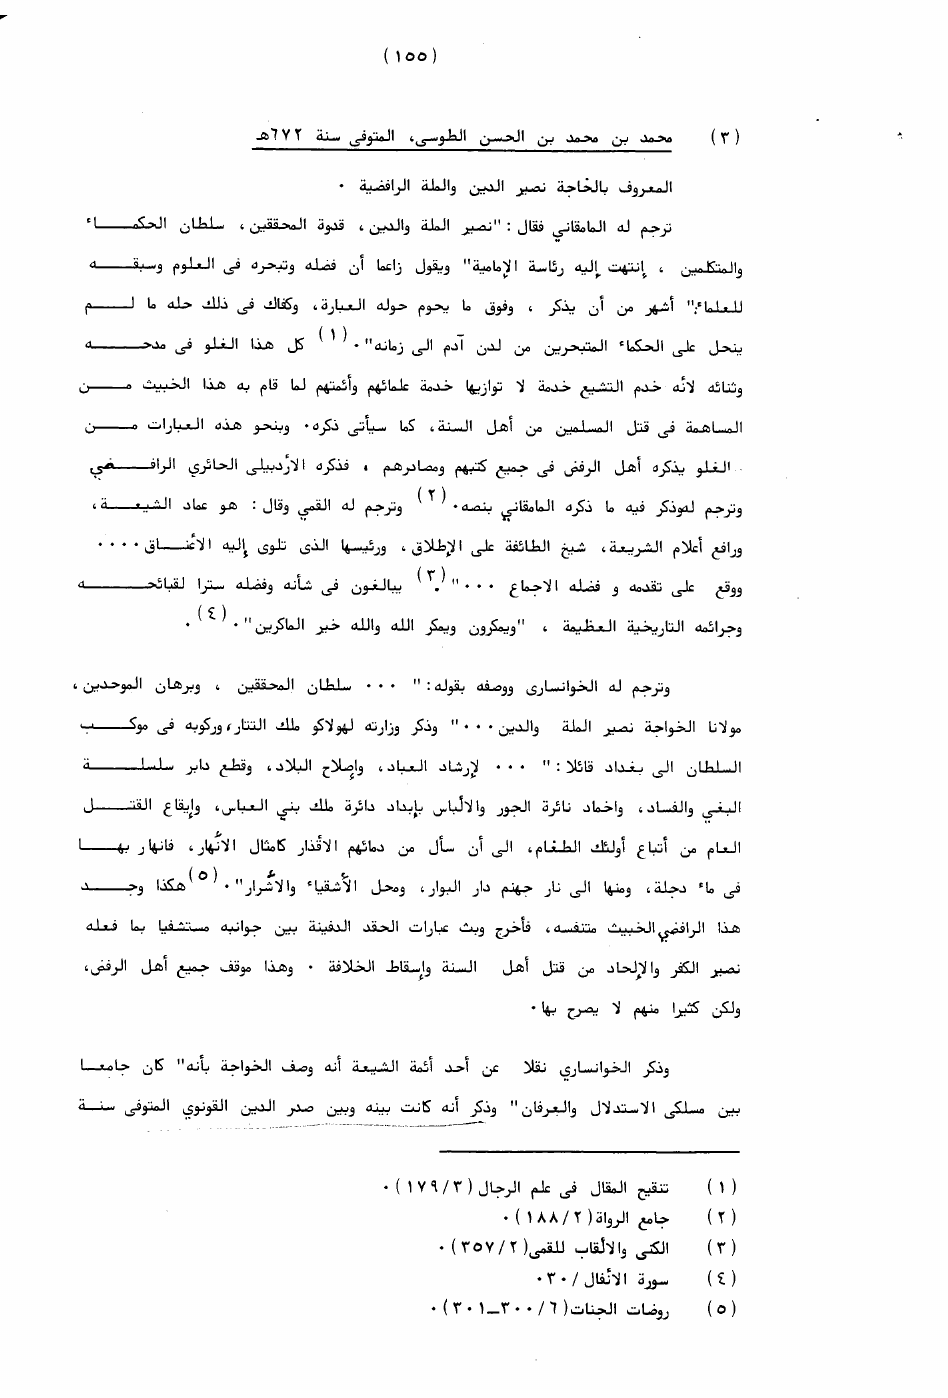 (١٥٥)
(٣) محمد بن محمد بن الحسن الطوسى، المتوفى سنة ٦٧٢هـ
المعروف بالخاجة نصير الدين والملة الرافضية ٠
ترجم له المامقاني فقال : "نصير الملة والدين، قدوة المحققين، سلطان الحكماء
والمتكلمين ، إنتهت إليه رئاسة الإمامية" ويقول زاعما أن فضله وتبحره فى العلوم وسبقه
للعلماء: " أشهر من أن يذكر ، وفوق ما يحوم حوله العبارة، وكفاك فى ذلك حله ما لم
ينحل على الحكماء المتبحرين من لدن آدم الى زمانه"٠(١) كل هذا الغلو فى مدحه
وثنائه لأنه خدم التشيع خدمة لا توازيها خدمة علمائهم وأئمتهم لما قام به هذا الخبيث من
المساهمة فى قتل المسلمين من أهل السنة، كما سيأتى ذكره٠ وبنحو هذه العبارات من
الغلو يذكره أهل الرفض فى جميع كتبهم ومصادرهم ، فذكره الأردبيلى الحائري الرافضي
وترجم له وذكر فيه ما ذكره المامقاني بنصه٠(٢) وترجم له القمي وقال : هو عماد الشيعة،
ورافع أعلام الشريعة، شيخ الطائفة على الإطلاق، ورئيسها الذى تلوى إليه الأعناق٠٠٠٠
ووقع على تقدمه و فضله الاجماع ٠٠٠"٠(٣) يبالغون فى شأنه وفضله سترا لقبائحه
وجرائمه التاريخية العظيمة ، "ويمكرون ويمكر الله والله خير الماكرين"٠(٤)٠
وترجم له الخوانسارى ووصفه بقوله: " ٠٠٠ سلطان المحققين ، وبرهان الموحدين،
مولانا الخواجة نصير الملة والدين٠٠٠" وذكر وزارته لهولاكو ملك التتار، وركوبه فى موكب
السلطان الى بغداد قائلا : " ٠٠٠ لإرشاد العباد، وإصلاح البلاد، وقطع دابر سلسلة
البغي والفساد، واخماد نائرة الجور والالباس بإبداد دائرة ملك بني العباس، وإيقاع القتل
العام من أتباع أولئك الطغام، الى أن سأل من دمائهم الأقذار كامثال الأنهار، فانهار بها
فى ماء دجلة، ومنها الى نار جهنم دار البوار، ومحل الأشقياء والأشرار"٠(٥) هكذا وجد
هذا الرافضي الخبيث متنفسه، فأخرج وبث عبارات الحقد الدفينة بين جوانبه مستشفيا بما فعله
نصير الكفر والإلحاد من قتل أهل السنة وإسقاط الخلافة ٠ وهذا موقف جميع أهل الرفض،
ولكن كثيرا منهم لا يصرح بها٠
وذكر الخوانساري نقلا عن أحد أئمة الشيعة أنه وصف الخواجة بأنه" كان جامعا
بين مسلكى الاستدلال والعرفان" وذكر أنه كانت بينه وبين صدر الدين القونوي المتوفى سنة
(١) تنقيح المقال فى علم الرجال (١٧٩/٣)٠
(٢) جامع الرواة(١٨٨/٢)٠
(٣) الكنى والألقاب للقمى(٣٥٧/٢)٠
(٤) سورة الأنفال /٣٠٠
(٥) روضات الجنات(٣٠٠/٦ــ٣٠١)٠